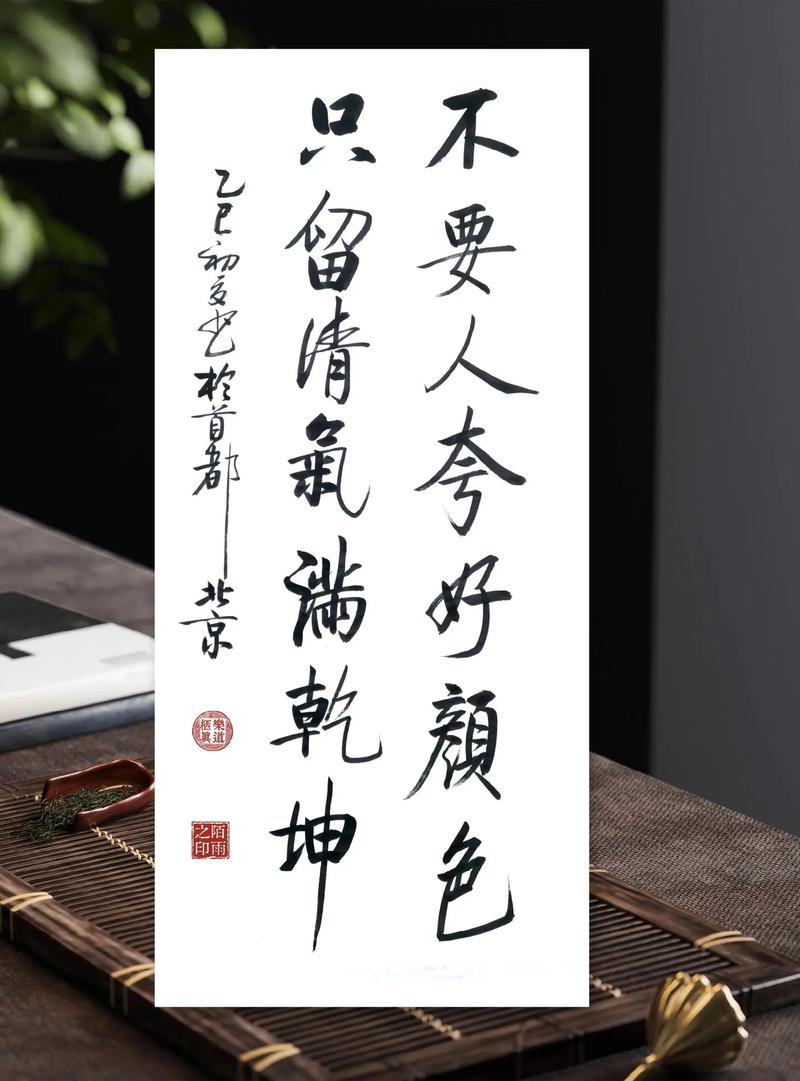 不要人夸好顔色
只留清氣滿乾坤
乙巳初夏书於首都北京
樂道栖眞
陌雨之印